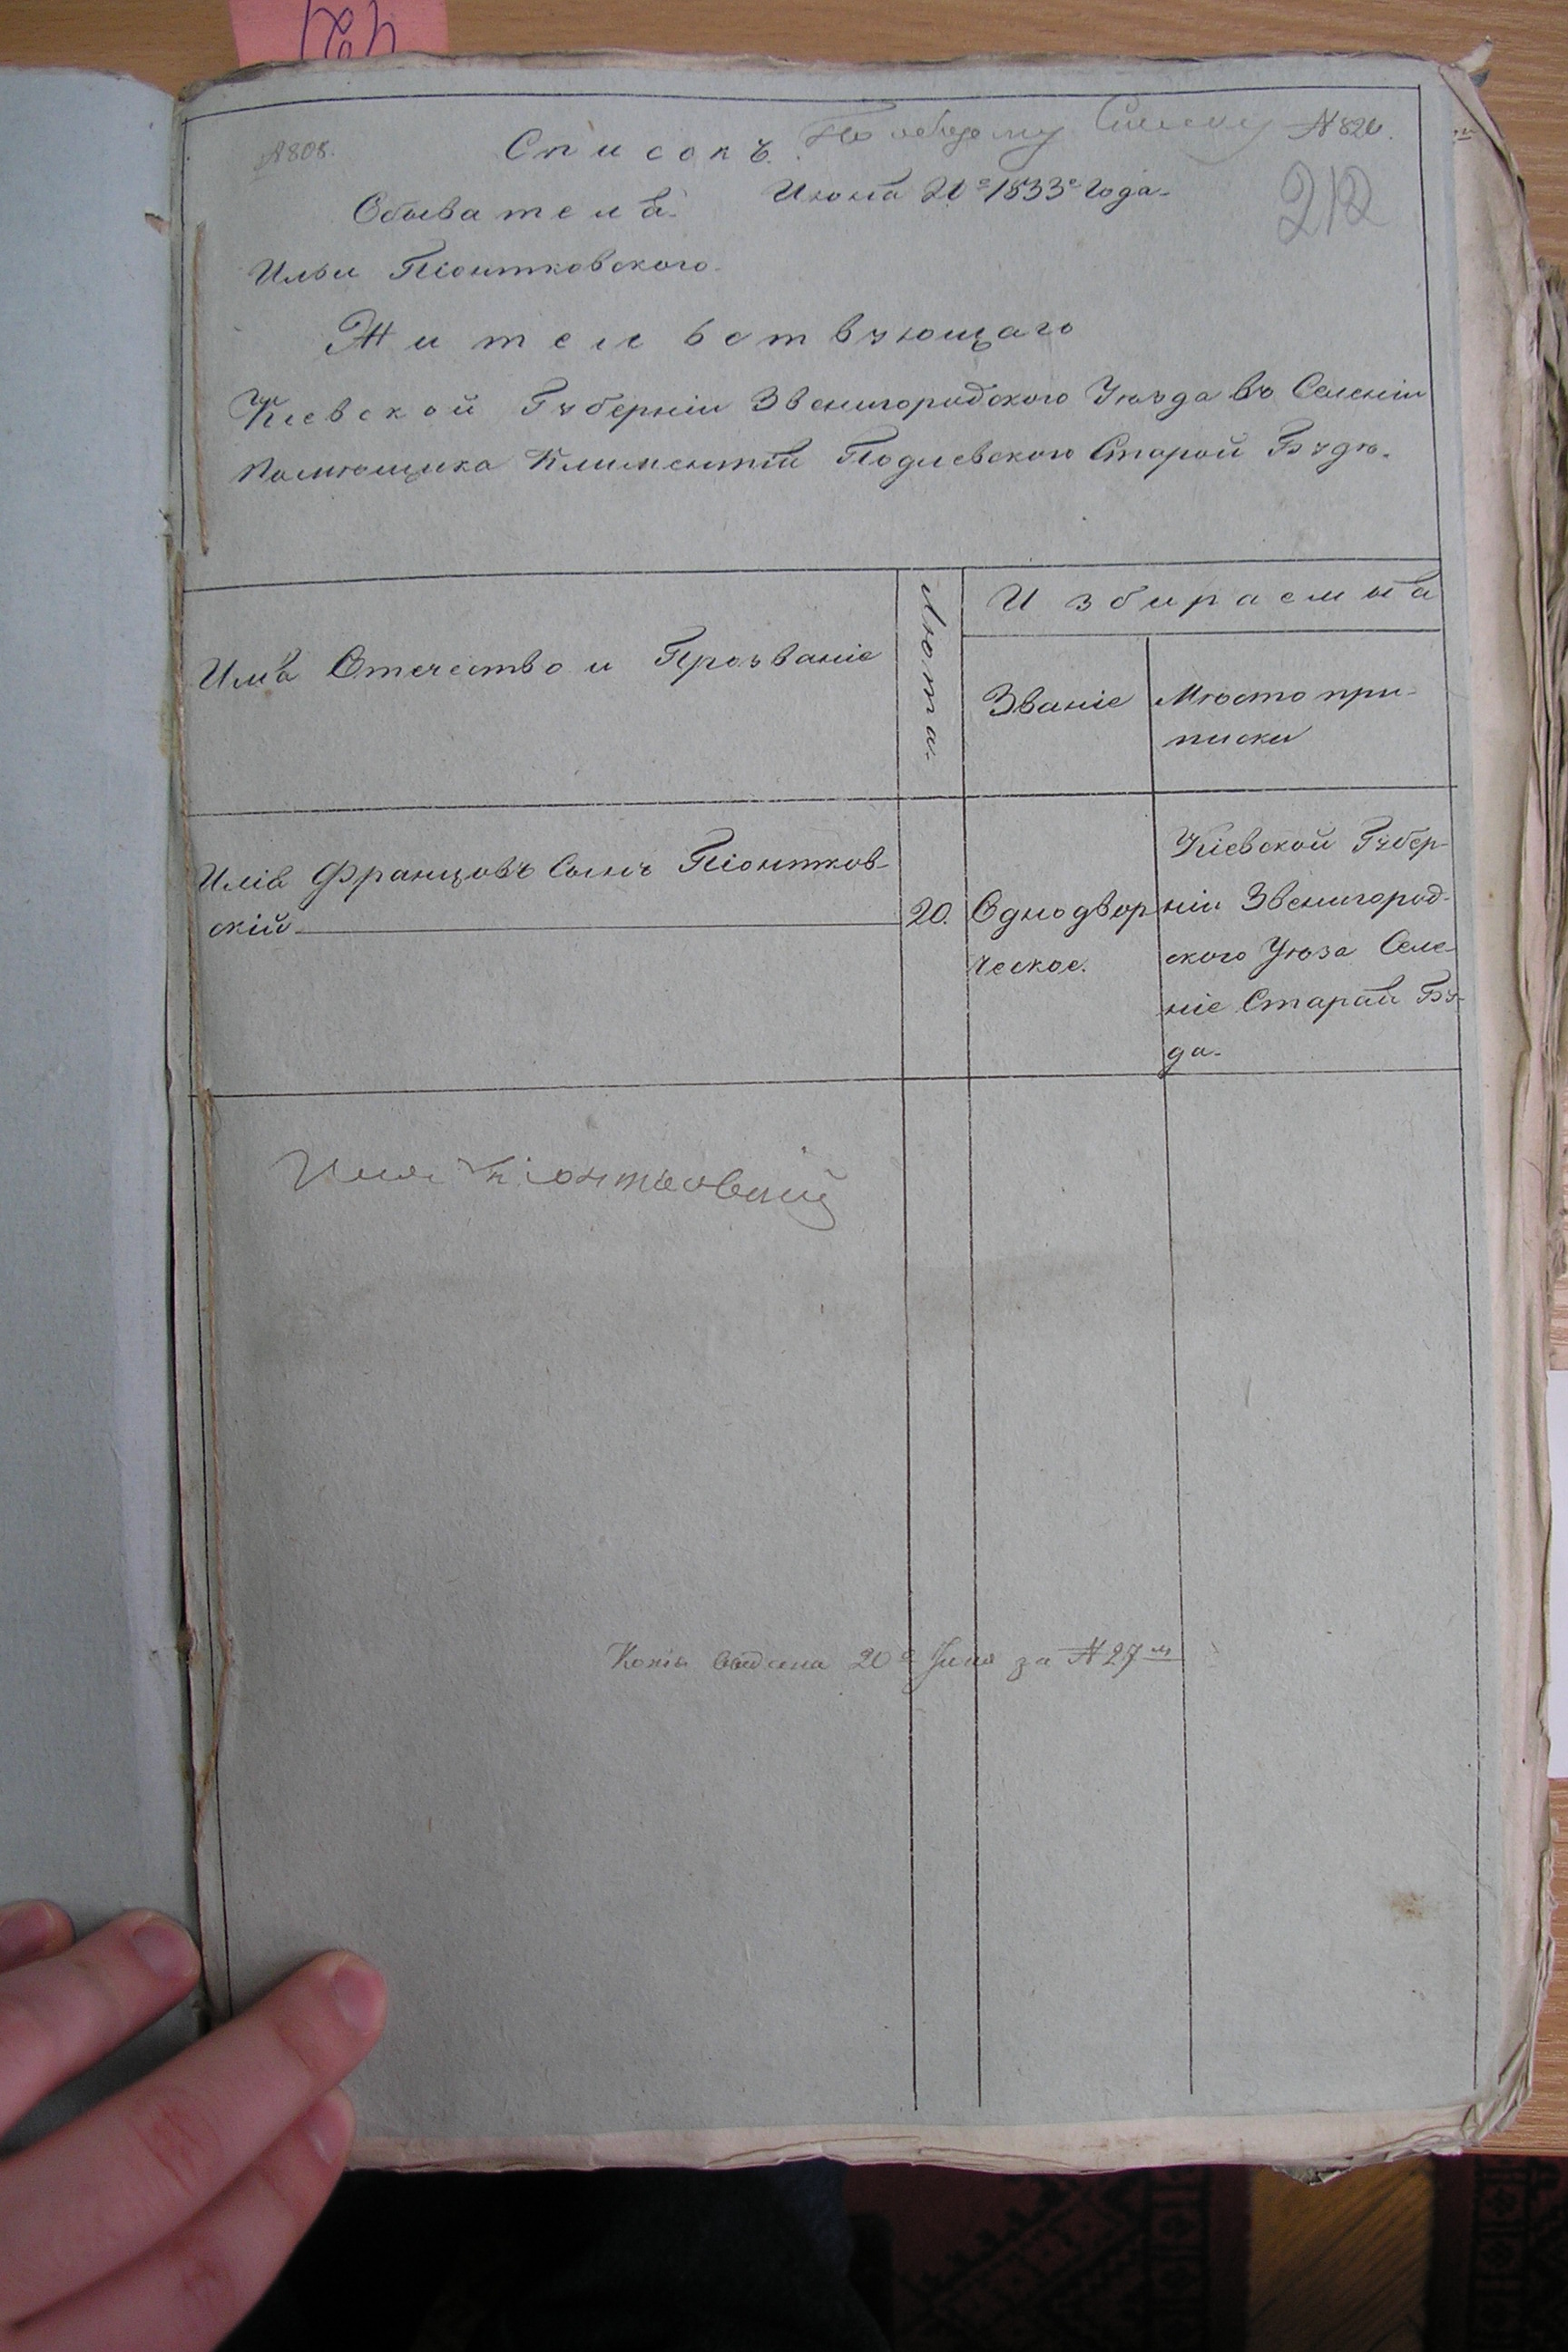 484
№ 808. Списокъ. По общему Списку № 820.
Обывателя Июня 20го 1833го Года
212
Ильи Піонтковского
Жительствующаго
Кіевской Губерніи Звенигородского Уѣзда въ Селеніи
Помѣщика Климентія Подлевского Старой Будѣ.
Имя Отечество и Прозваніе
Лѣта
Избираемыя
Званіе
Мѣсто при-
писки
Илія Францовъ Сынъ Піонтков-
скій
20.
Однодвор
ческое.
Кіевской Губер-
ніи Звенигород-
ского Уѣзда Селе-
ніе Старай Бу-
да.
Илія Піонтковскій
Копія выдана 20го Іюня за № 27м